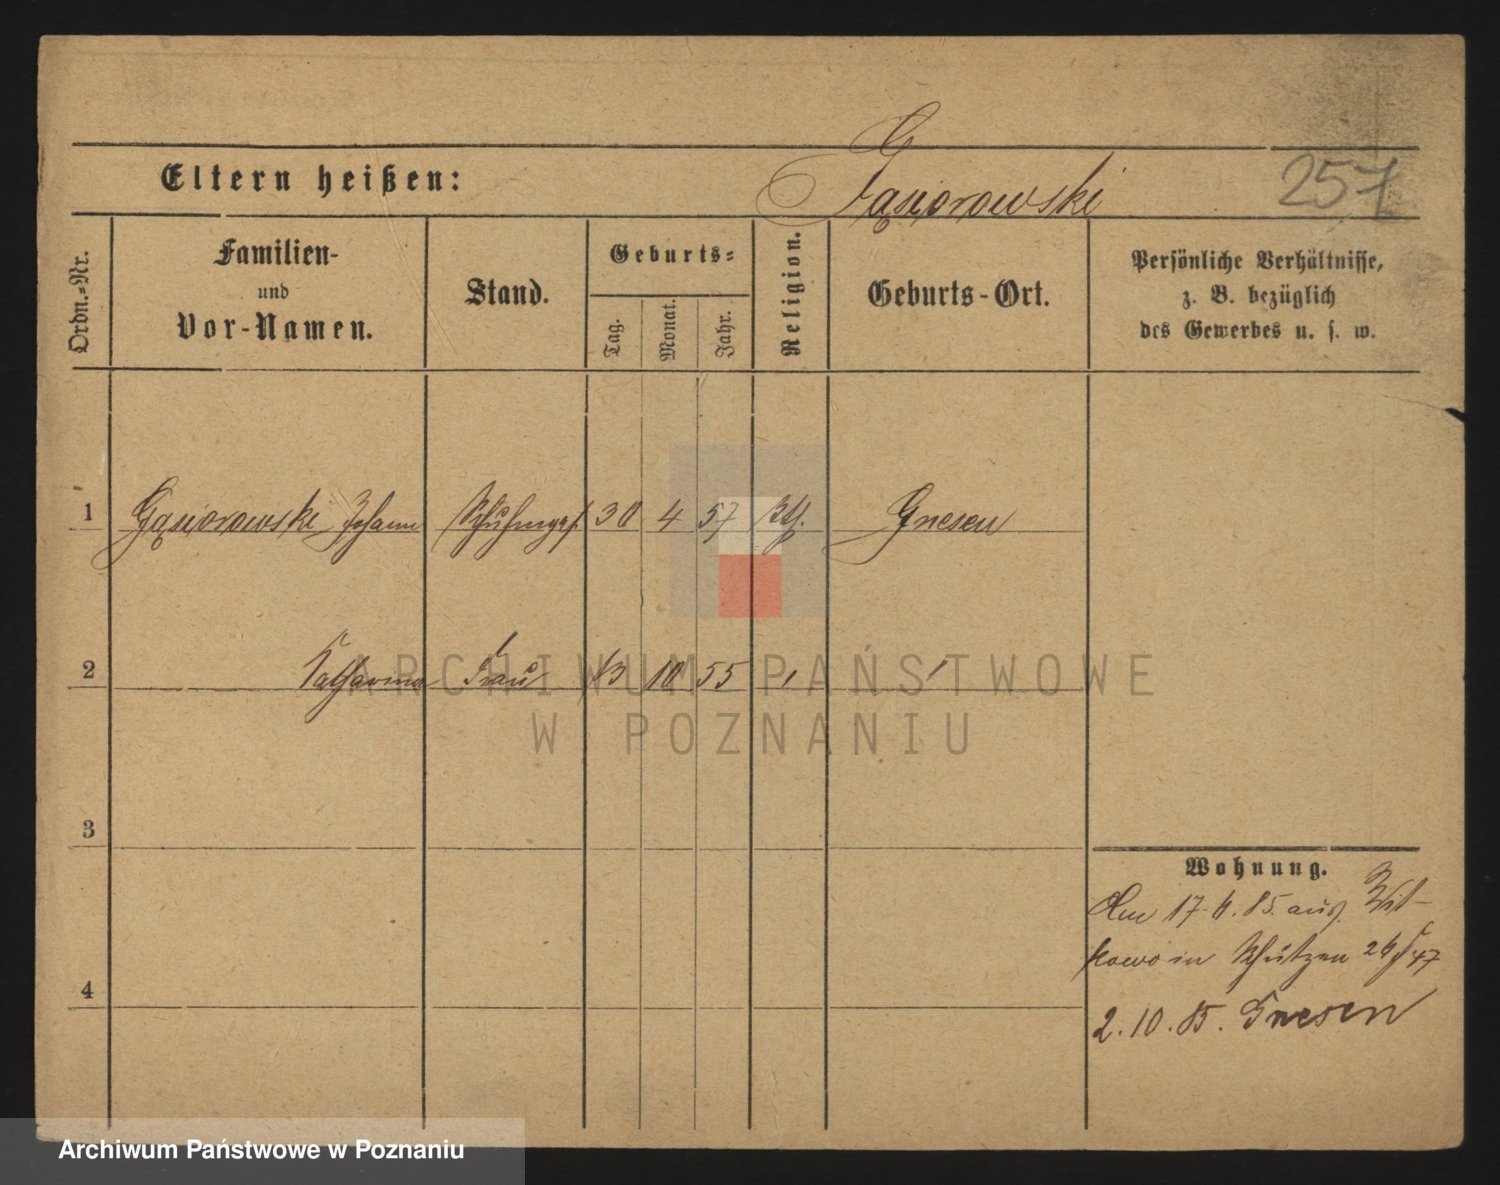 Eltern heißen:
Gąsiorowski
257
Ordn.-Nr.
Familien-
und
Vor-Namen.
Stand.
Geburts-
Tag.
Monat.
Jahr.
Religion.
Geburts-Ort.
Persönliche Verhältnisse,
z. B. bezüglich
des Gewerbes u. s. w.
1 Gąsiorowski Johann 30 4 57 Gnesen
2 Katharina Frau 13 10 55
ARCHIWUM PAŃSTWOWE
W POZNANIU
3
4
Wohnung.
Am 17. 4. 85 aus Wit-
kowo in Schützen
2. 10. 85. Gnesen
Archiwum Państwowe w Poznaniu